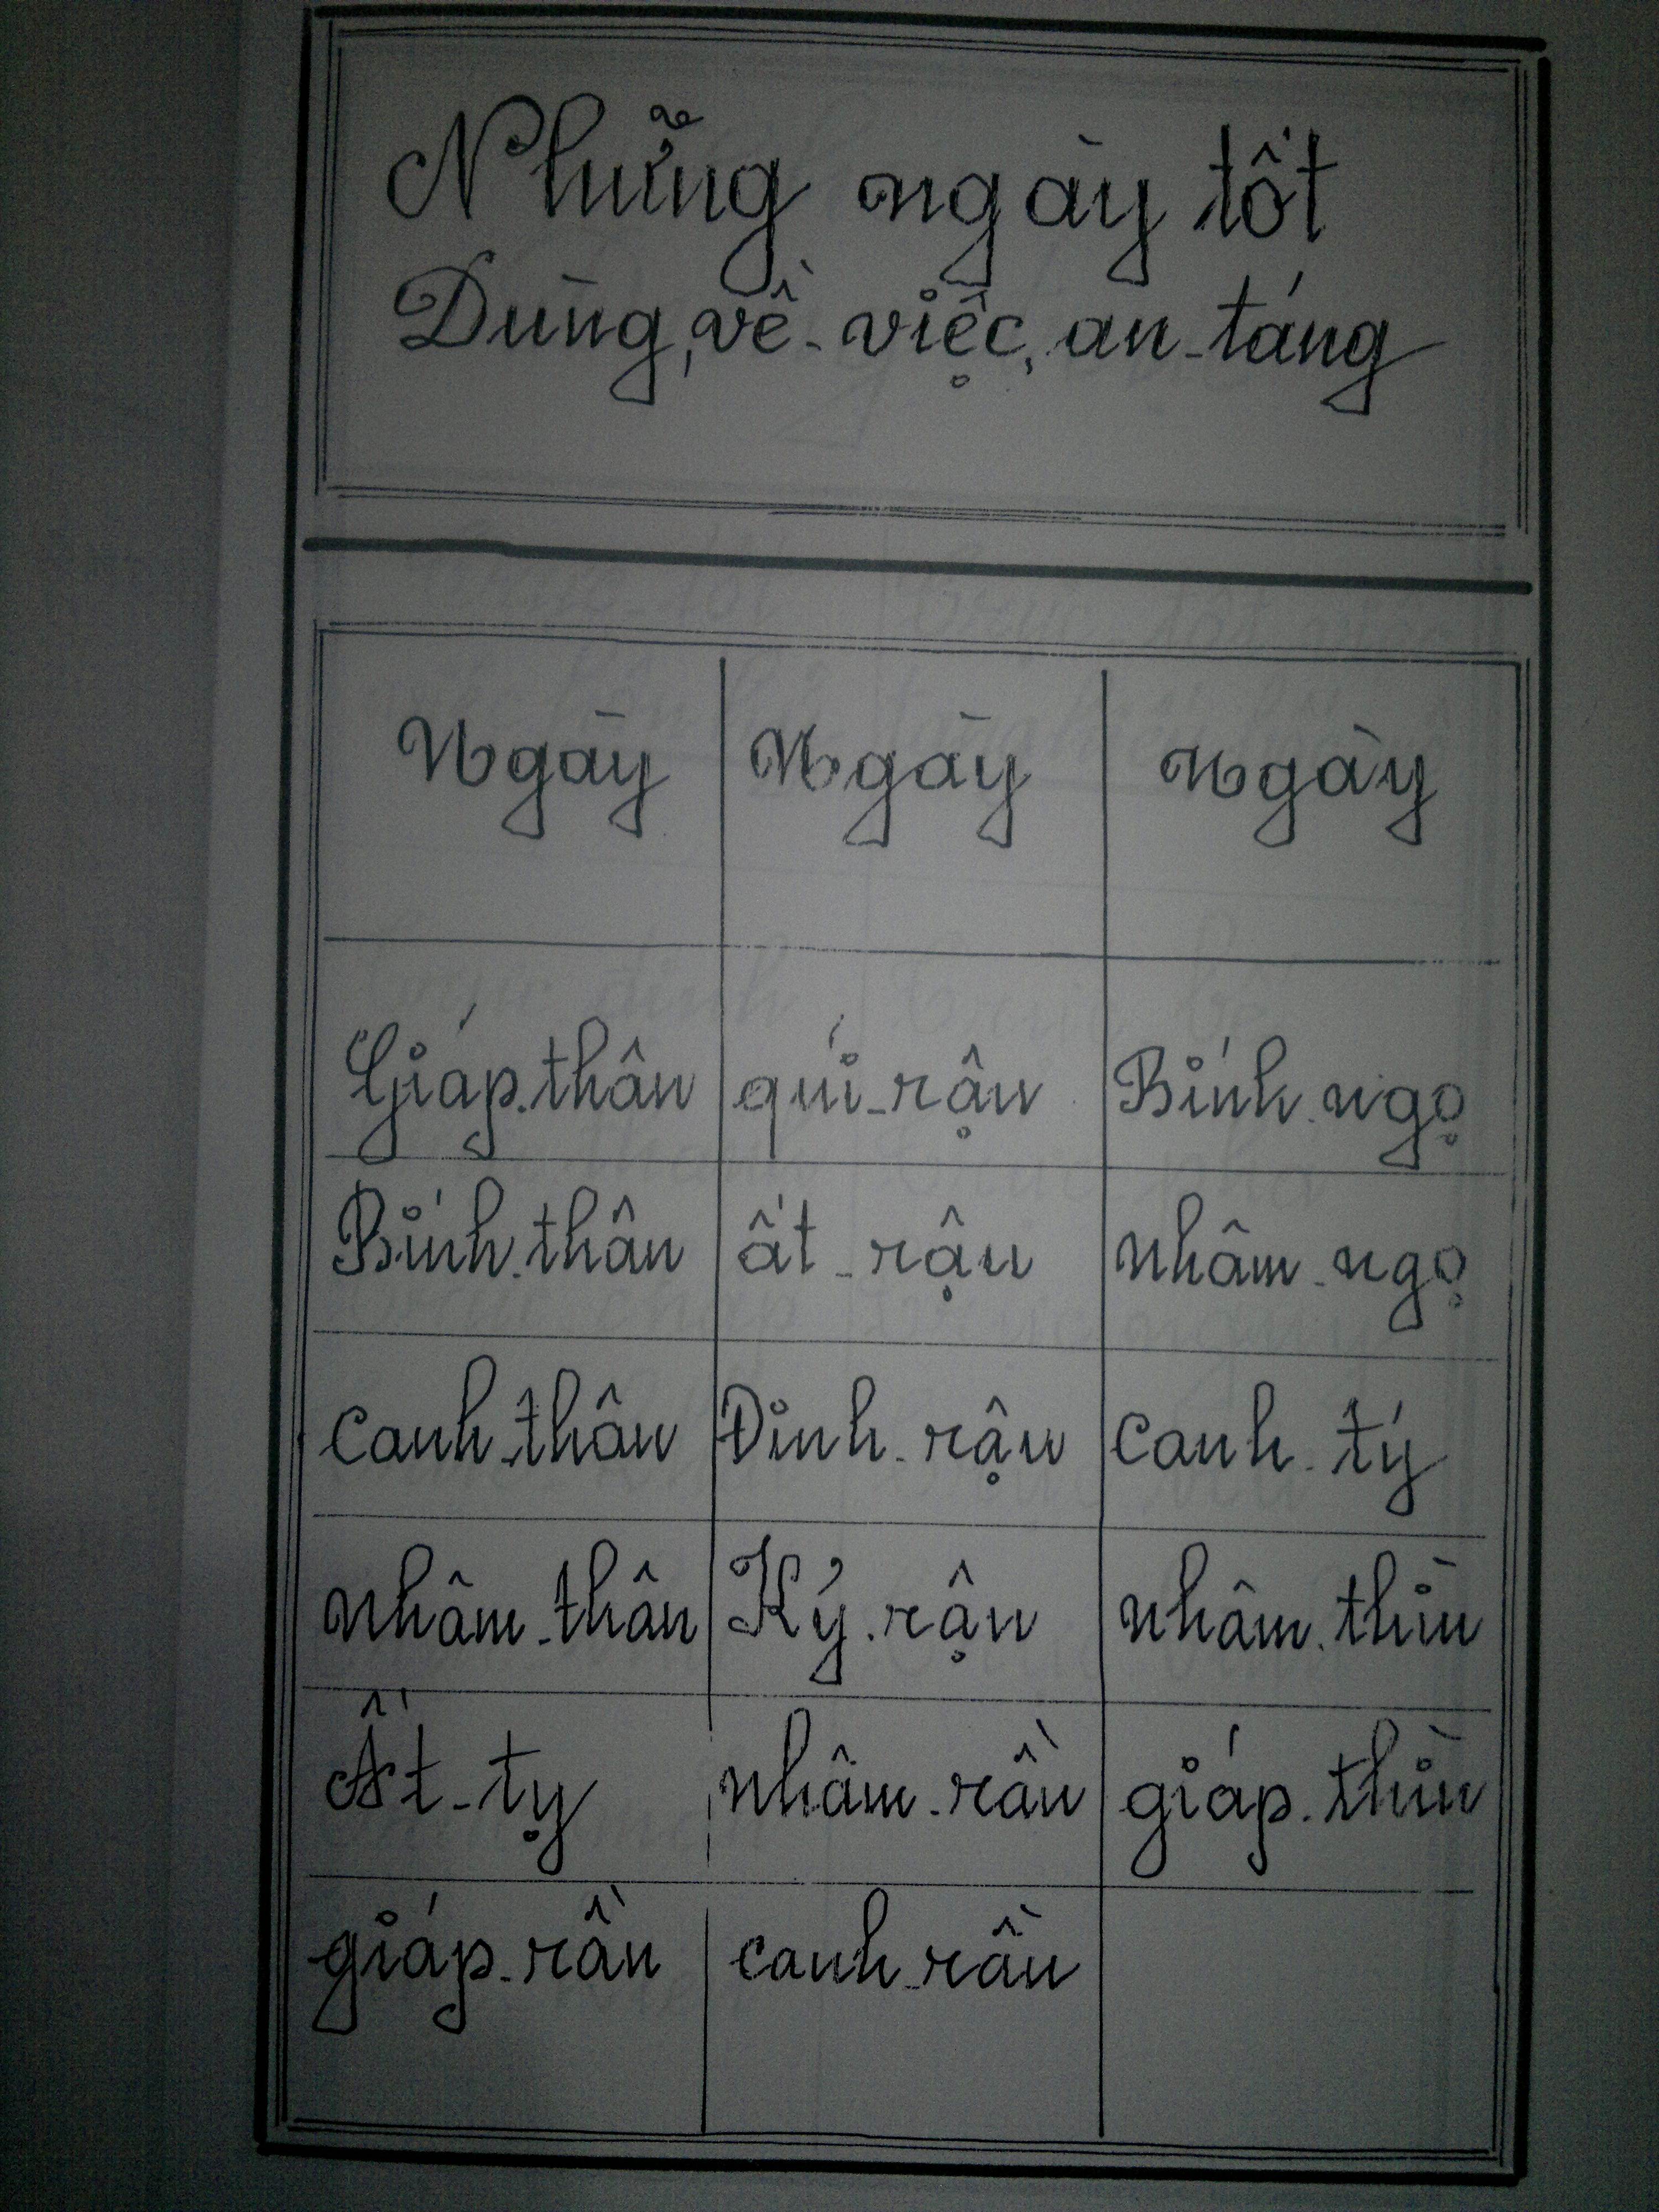 Những ngày tốt
Dùng, về - việc, an - táng
Ngày Ngày Ngày
Giáp. thân quí - rậu Bính. ngọ
Bính. thân ất - rậu nhâm - ngọ
canh - thân Đinh. rậu canh. tý
nhâm - thân Ký. rậu nhâm. thìn
Ất - tỵ nhâm - rần giáp. thìn
giáp - rần canh - rần